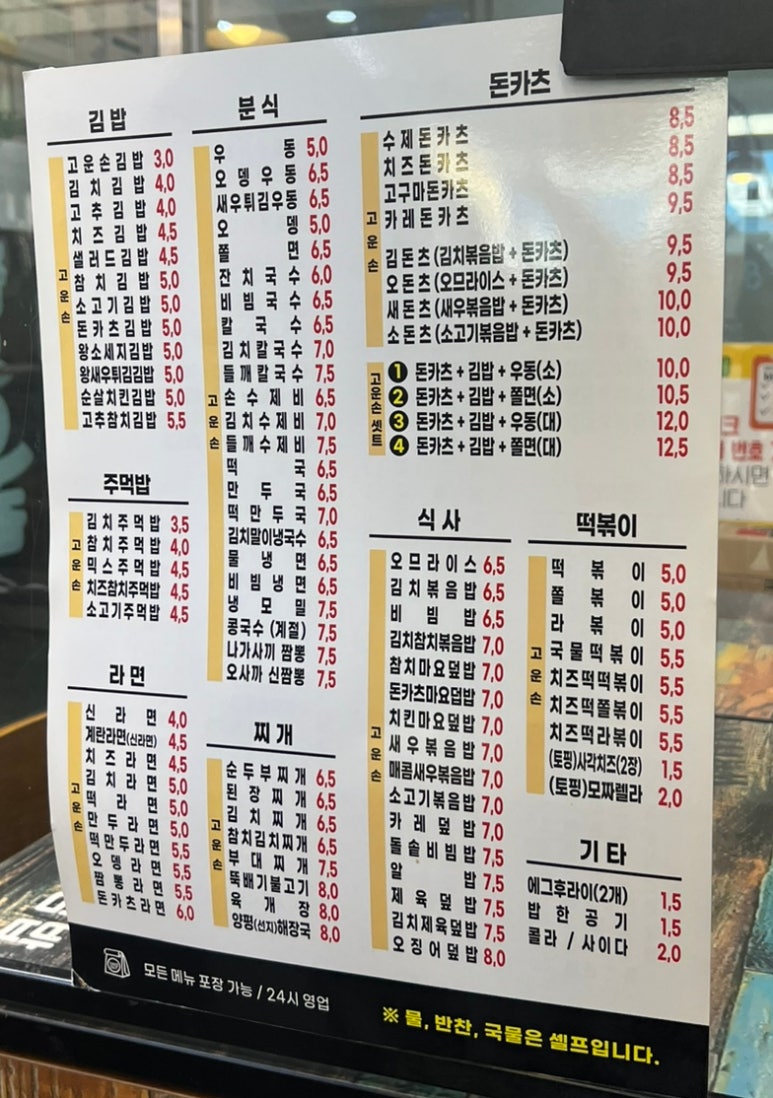 김밥
고운손
고운손김밥 3,0
김치김밥 4,0
고추김밥 4,0
치즈김밥 4,5
샐러드김밥 4,5
참치김밥 5,0
소고기김밥 5,0
돈카츠김밥 5,0
왕소세지김밥 5,0
왕새우튀김김밥 5,0
순살치킨김밥 5,0
고추참치김밥 5,5
주먹밥
고운손
김치주먹밥 3,5
참치주먹밥 4,0
믹스주먹밥 4,5
치즈참치주먹밥 4,5
소고기주먹밥 4,5
라면
고운손
신라면 4,0
계란라면(신라면) 4,5
치즈라면 4,5
김치라면 5,0
떡라면 5,0
만두라면 5,0
떡만두라면 5,5
오뎅라면 5,5
짬뽕라면 5,5
돈카츠라면 6,0
분식
고운손
우동 5,0
오뎅우동 6,5
새우튀김우동 6,5
오뎅 5,0
쫄면 6,5
잔치국수 6,0
비빔국수 6,5
칼국수 6,5
김치칼국수 7,0
들깨칼국수 7,5
손수제비 6,5
김치수제비 7,0
들깨수제비 7,5
떡국 6,5
만두국 6,5
떡만두국 7,0
김치말이냉국수 6,5
물냉면 6,5
비빔냉면 6,5
냉모밀 7,5
콩국수 (계절) 7,5
나가사끼 짬뽕 7,5
오사까 신짬뽕 7,5
찌개
고운손
순두부찌개 6,5
된장찌개 6,5
김치찌개 6,5
참치김치찌개 6,5
부대찌개 7,5
뚝배기불고기 8,0
육개장 8,0
양평(선지)해장국 8,0
돈카츠
고운손
수제돈카츠 8,5
치즈돈카츠 8,5
고구마돈카츠 8,5
카레돈카츠 9,5
김돈츠(김치볶음밥 + 돈카츠) 9,5
오돈츠(오므라이스 + 돈카츠) 9,5
새돈츠(새우볶음밥 + 돈카츠) 10,0
소돈츠(소고기볶음밥 + 돈카츠) 10,0
고운손 셋트
1 돈카츠 + 김밥 + 우동(소) 10,0
2 돈카츠 + 김밥 + 쫄면(소) 10,5
3 돈카츠 + 김밥 + 우동(대) 12,0
4 돈카츠 + 김밥 + 쫄면(대) 12,5
식사
고운손
오므라이스 6,5
김치볶음밥 6,5
비빔밥 6,5
김치참치볶음밥 7,0
참치마요덮밥 7,0
돈카츠마요덥밥 7,0
치킨마요덮밥 7,0
새우볶음밥 7,0
매콤새우볶음밥 7,0
소고기볶음밥 7,0
카레덮밥 7,0
돌솥비빔밥 7,5
알밥 7,5
제육덮밥 7,5
김치제육덮밥 7,5
오징어덮밥 8,0
떡볶이
고운손
떡볶이 5,0
쫄볶이 5,0
라볶이 5,0
국물떡볶이 5,5
치즈떡떡볶이 5,5
치즈떡쫄볶이 5,5
치즈떡라볶이 5,5
(토핑)사각치즈(2장) 1,5
(토핑)모짜렐라 2,0
기타
에그후라이(2개) 1,5
밥한공기 1,5
콜라 / 사이다 2,0
모든 메뉴 포장 가능 / 24시 영업
※ 물, 반찬, 국물은 셀프입니다.
번호
하시면